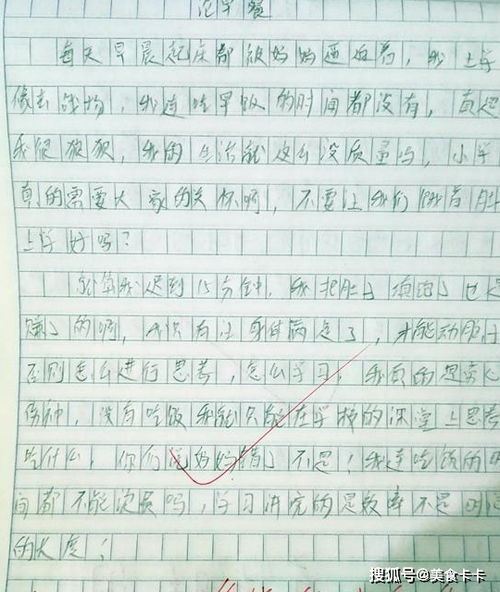 早餐
每天早晨起床都被妈妈逼迫着,我上学
像去战场,我连吃早饭的时间都没有,真是
我很狼狈,我的生活就这么没质量吗,小学
真的需要大家的关怀啊,不要让我们饿着肚
上学好吗?
就算我迟到15分钟,我把肚子填饱了也是
赚了的啊,我只有让身体满足了,才能动脑
否则怎么进行思考,怎么学习,我真的思
伤神,没有吃饭我就只能在学校的课堂上思考
吃什么,你们说妈妈错了不是!我连吃饭的时
间都不能浪费吗,学习讲究的是效率不是时间
的长度!
搜狐号@美食卡卡